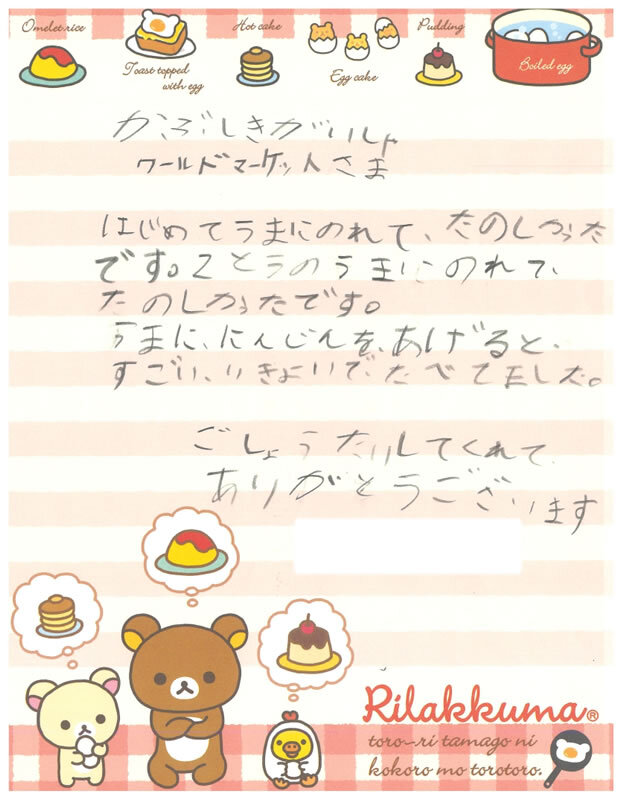 Omelet rice
Toast topped
with egg
Hot cake
Egg cake
Pudding
Boiled egg
かぶしきがいしゃ
ワールドマーケットさま
はじめてうまにのれて、たのしかった
です。2とうのうまにのれて、
たのしかったです。
うまに、にんじんを、あげると、
すごい、いきよいで、たべてました。
ごしょうたいしてくれて
ありがとうございます
Rilakkuma®
toro-ri tamago ni
kokoro mo torotoro.